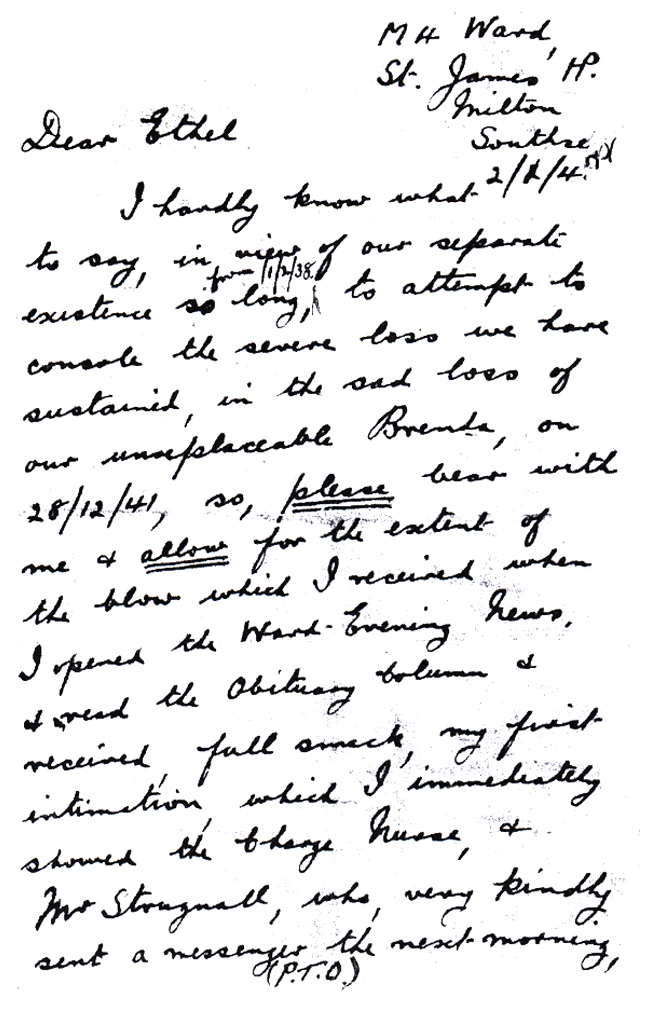 M H Ward,
St. James' H.
Milton
Southse
Dear Ethel
2/1/4
I hardly know what
to say, in view of our separate
from 1/2/38.
existence so long, to attempt to
console the severe loss we have
sustained, in the sad loss of
our unreplaceable Brenda, on
28/12/41, so, please bear with
me & allow for the extent of
the blow which I received when
I opened the Ward-Evening News,
& read the Obituary Column &
received, full smack, my first
intimation, which I immediately
showed the Charge Nurse, &
Mr Strugnall, who, very kindly
sent a messenger the next morning,
(P.T.O.)